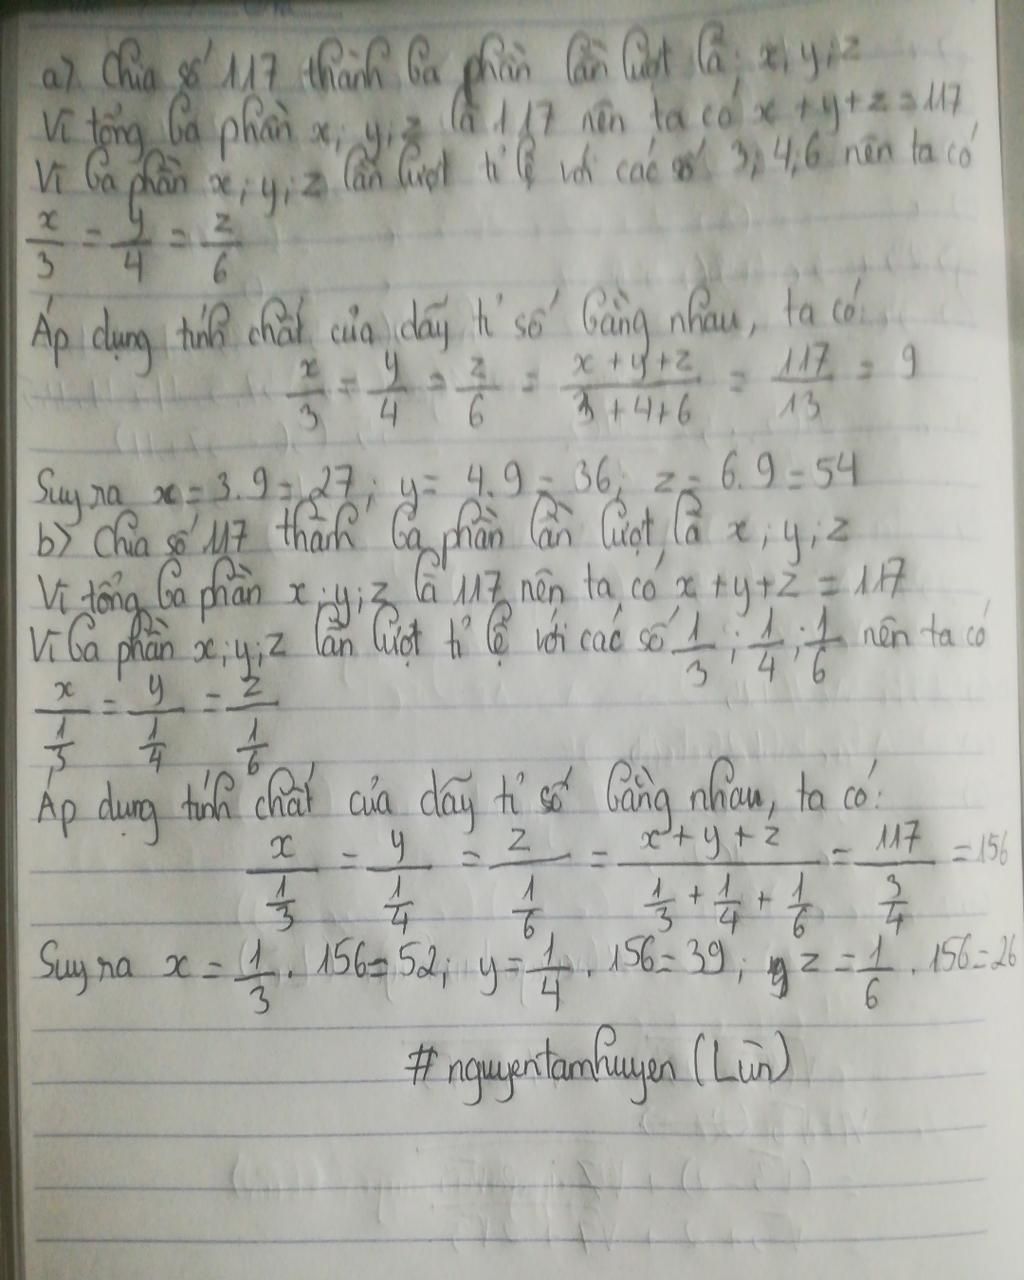 a) Chia số 117 thành ba phần lần lượt là: x; y; z
Vì tổng ba phần x; y; z là 117 nên ta có x + y + z = 117
Vì ba phần x; y; z lần lượt tỉ lệ với các số 3; 4; 6 nên ta có
x/3 = y/4 = z/6
Áp dụng tính chất của dãy tỉ số bằng nhau, ta có:
x/3 = y/4 = z/6 = (x + y + z)/(3 + 4 + 6) = 117/13 = 9
Suy ra x = 3.9 = 27; y = 4.9 = 36; z = 6.9 = 54
b) Chia số 117 thành ba phần lần lượt là x; y; z
Vì tổng ba phần x; y; z là 117 nên ta có x + y + z = 117
Vì ba phần x; y; z lần lượt tỉ lệ với các số 1/3; 1/4; 1/6 nên ta có
x/(1/3) = y/(1/4) = z/(1/6)
Áp dụng tính chất của dãy tỉ số bằng nhau, ta có:
x/(1/3) = y/(1/4) = z/(1/6) = (x + y + z)/(1/3 + 1/4 + 1/6) = 117/(3/4) = 156
Suy ra x = 1/3 . 156 = 52; y = 1/4 . 156 = 39; z = 1/6 . 156 = 26
#nguyentamhuyen (Lùn)